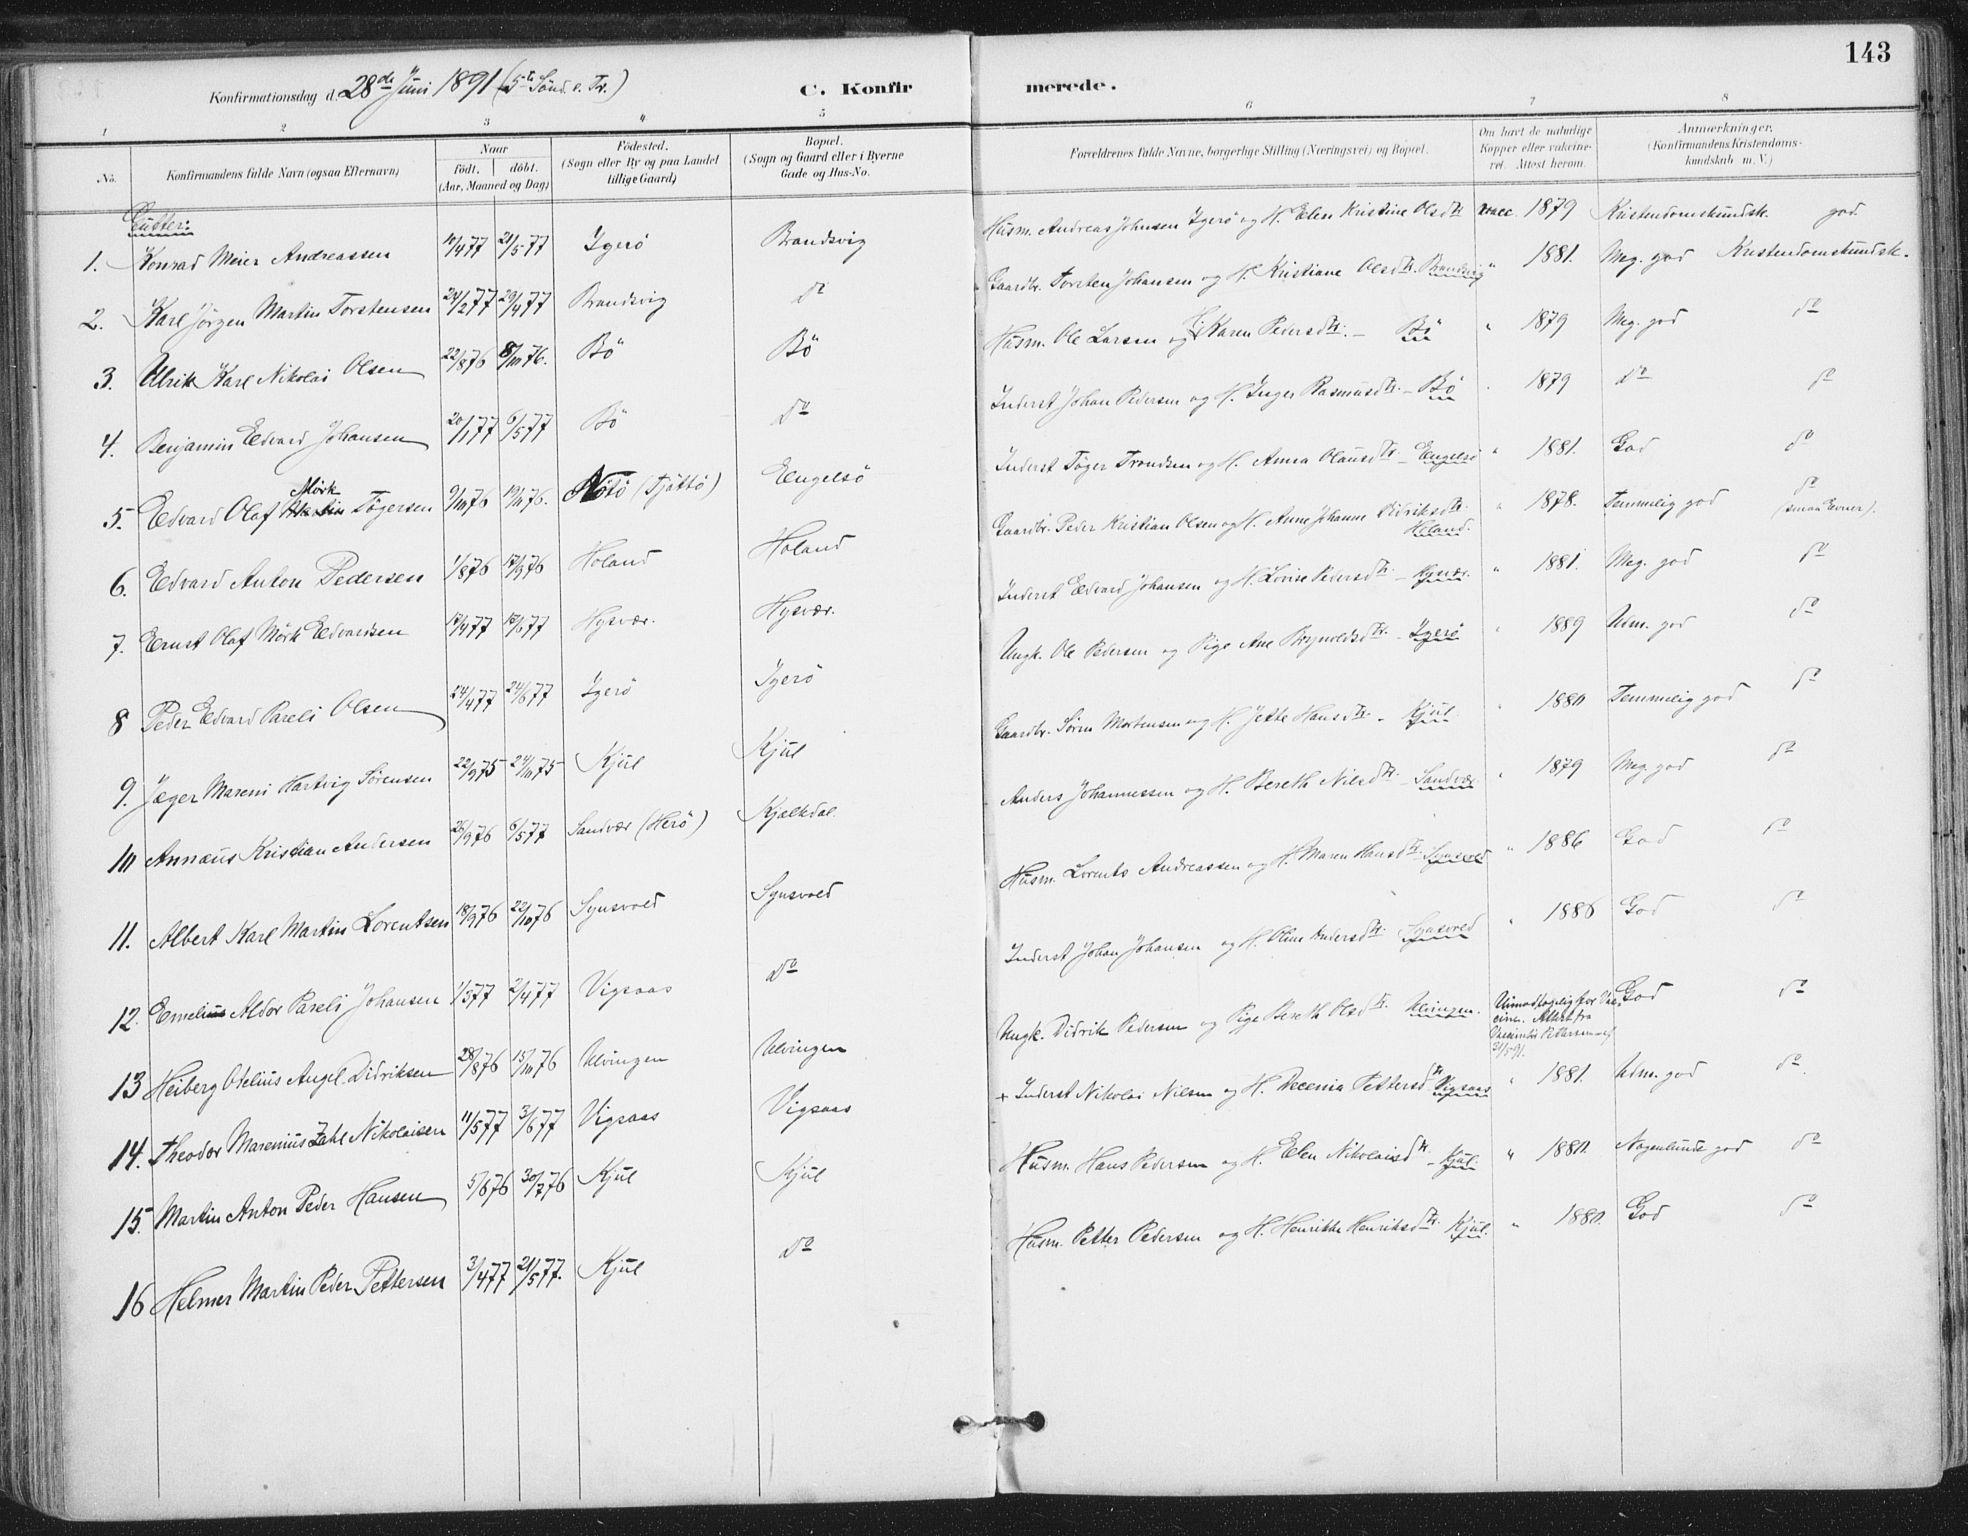 143
Konfirmationsdag d. 28de Juni 1891 (5te Sönd. e. Tr.)
C. Konfirmerede.
1 2 3 4 5 6 7 8
No. Konfirmandens fulde Navn (ogsaa Efternavn) Naar födt. döbt. (Aar, Maaned og Dag) Födested. (Sogn eller By og paa Landet tillige Gaard) Bopæl. (Sogn og Gaard eller i Byerne Gade og Hus-No. Forældrenes fulde Navne, borgerlige Stilling (Næringsvei) og Bopæl. Om havt de naturlige Kopper eller vakcineret. Attest herom. Anmærkninger. (Konfirmandens Kristendomskundskab m. V.)
Gutter:
1. Konrad Meier Andreassen /4 77 21/5 77 Igerö Brandsvig Husm. Andreas Johnsen Igerö og H. Elen Kristine Olsdtr vacc. 1879 Kristendomskundsk. god.
2. Karl Jörgen Martin Torstensen 24/2 77 29/4 77 Brandsvig do Gaardbr. Torsten Johansen og H. Kristiane Olsdtr. Brandsvig " 1881. Meg. god Kristendomskundsk.
3. Ulrik Karl Nikolai Olsen 22/8 76 8/10 76. Bö Bö Husm. Ole Larsen og H. Karen Pedersdtr. – Bö " 1879 Meg. god do
4. Benjamin Edvard Johansen 20/1 77 6/5 77 Bö do Inderst Johan Pedersen og H. Inger Rasmusdtr. – Bö " 1879 do do
5. Edvard Olaf Mörk Tögersen 9/10 76 19/11 76. Nötö (Tjöttö) Engelsö Inderst Töger Trondsen og H. Anna Olausdtr – Engelsö " 1881. God do
6. Edvard Anton Pedersen 1/8 76 17/9 76 Holand Holand Gaardbr. Peder Kristian Olsen og H. Anne Johanne Didriksdtr. Holand. " 1878. Temmelig god do (smaa Evner).
7. Ernst Olaf Mörk Edvardsen 17/4 77 /6 77 Hysvær. Hysvær. Inderst Edvard Johansen og H. Lovise Pedersdtr – Hysvær. " 1881. Meg. god do
8 Peder Edvard Pareli Olsen 24/4 77 24/6 77 Igerö Igerö Ungk. Ole Pedersen og Pige Ane Ragnvoldsdtr. – Igerö " 1889 Udm. god do
9. Jæger Mareni Hartvig Sörensen 22/9 75 24/10 75 Kjul Kjul Gaardbr. Sören Mortensen og H. Jette Hansdtr. – Kjul " 1880 Temmelig god do
10 Annæus Kristian Andersen 26/9 76 6/5 77 Sandvær (Herö) Kjalkdal Anders Johannessen og H. Bereth Nilsdtr – Sandvær " 1879 Meg. god do
11. Albert Karl Martin Lorentsen 18/9 76 22/10 76 Synsvold Synsvold Husm. Lorents Andreassen og H. Maren Hansdtr. Synsvold " 1886 God do
12. Emelius Aldor Pareli Johansen 1/3 77 2/4 77 Vigsaas do Inderst Johan Johansen og H. Oline Andersdtr. Synsvold " 1886 God do
13 Heiberg Odelius Angel Didriksen 28/8 76 15/10 76 Ulvingen Ulvingen Ungk. Didrik Pedersen og Pige Bereth Olsdtr. Ulvingen. Uimodtagelig for Vaccine. Attest fra Pettersen af 31/5 91. God do
14. Theodor Marenius Zahl Nikolaisen 11/5 77 3/6 77 Vigsaas Vigsaas + Inderst Nikolai Nilsen og H. Decenia Pettersdtr Vigsaas " 1881. Udm. god do.
15. Martin Anton Peder Hansen 5/6 76 30/7 76 Kjul Kjul Husm. Hans Pedersen og H. Elen Nikolaisdtr – Kjul. " 1880. Nogenlunde god do
16 Helmer Martin Peder Pettersen 3/4 77 21/5 77. Kjul do Husm. Petter Pedersen og H. Henrikke Henriksdtr. Kjul. " 1880. God do